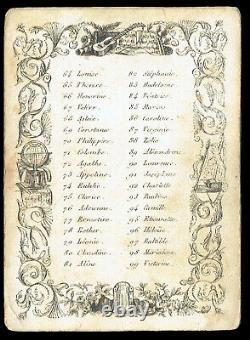 64 Louise.
65 Thérèse.
66 Honorine.
67 Valère.
68
69 Constance
70 Philippine
71 Colombe
72 Agathe
73 Appoline
74 Eulalie
75 Clarice
76 Adrienne
77 Ernestine
78 Esther
79 Léonie
80 Claudine
81 Aline
82 Stéphanie.
83 Madeleine
84 Béatrice
85
86 Caroline
87 Virginie
88 Zélie
89 Alexandrine
90 Laurence
91 Joséphine
92 Charlotte
93
94 Camille
95
96 Héloïse
97
98
99 Victorine